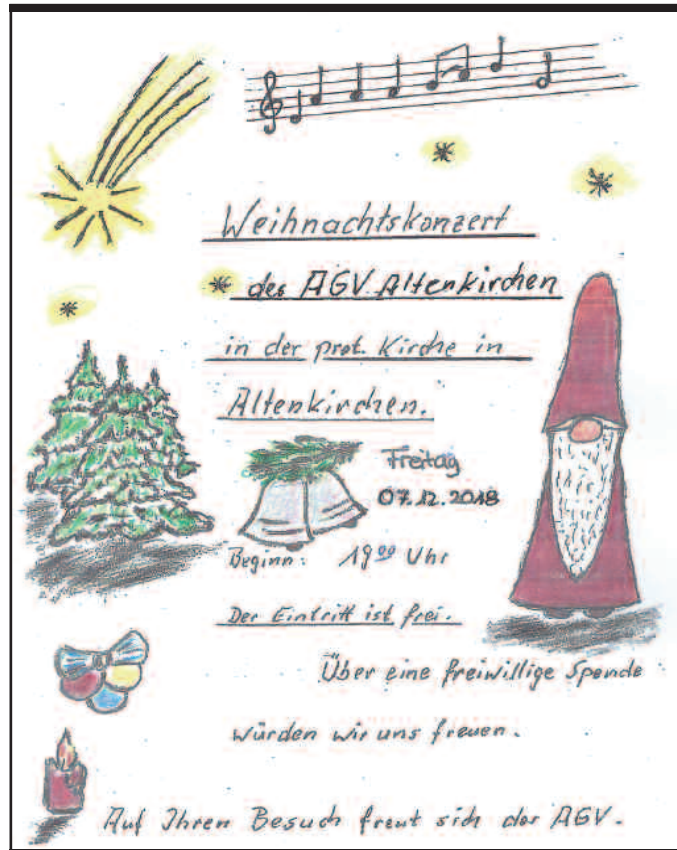 Weihnachtskonzert
des AGV Altenkirchen
in der prot. Kirche in
Altenkirchen.
Freitag
07.12.2018
Beginn: 19⁰⁰ Uhr
Der Eintritt ist frei.
Über eine freiwillige Spende
würden wir uns freuen.
Auf Ihren Besuch freut sich der AGV.